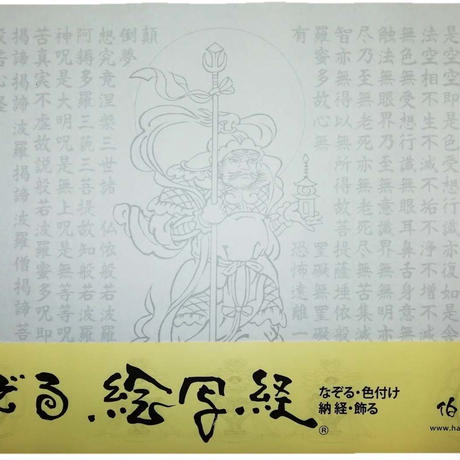 是空空即是色受想行識亦復如是舍
法空相不生不滅不垢不淨不増不減
無色無受想行識無眼耳鼻舌身意無
触法無眼界乃至無意識界無無明亦
尽乃至無老死亦無老死尽無苦集滅
智亦無得以無所得故菩提薩埵依般
羅蜜多故心無
罣礙無罣礙
有
恐怖遠離一
顛
倒夢
想究竟涅槃三世諸仏依般若波羅
阿耨多羅三藐三菩提故知般若波羅
神呪是大明呪是無上呪是無等等呪
苦真実不虚故説般若波羅蜜多呪即
羯諦羯諦波羅羯諦波羅僧羯諦
般若心経
ぞる 絵写経®
なぞる・色付け
納経・飾る
伯
www.ha